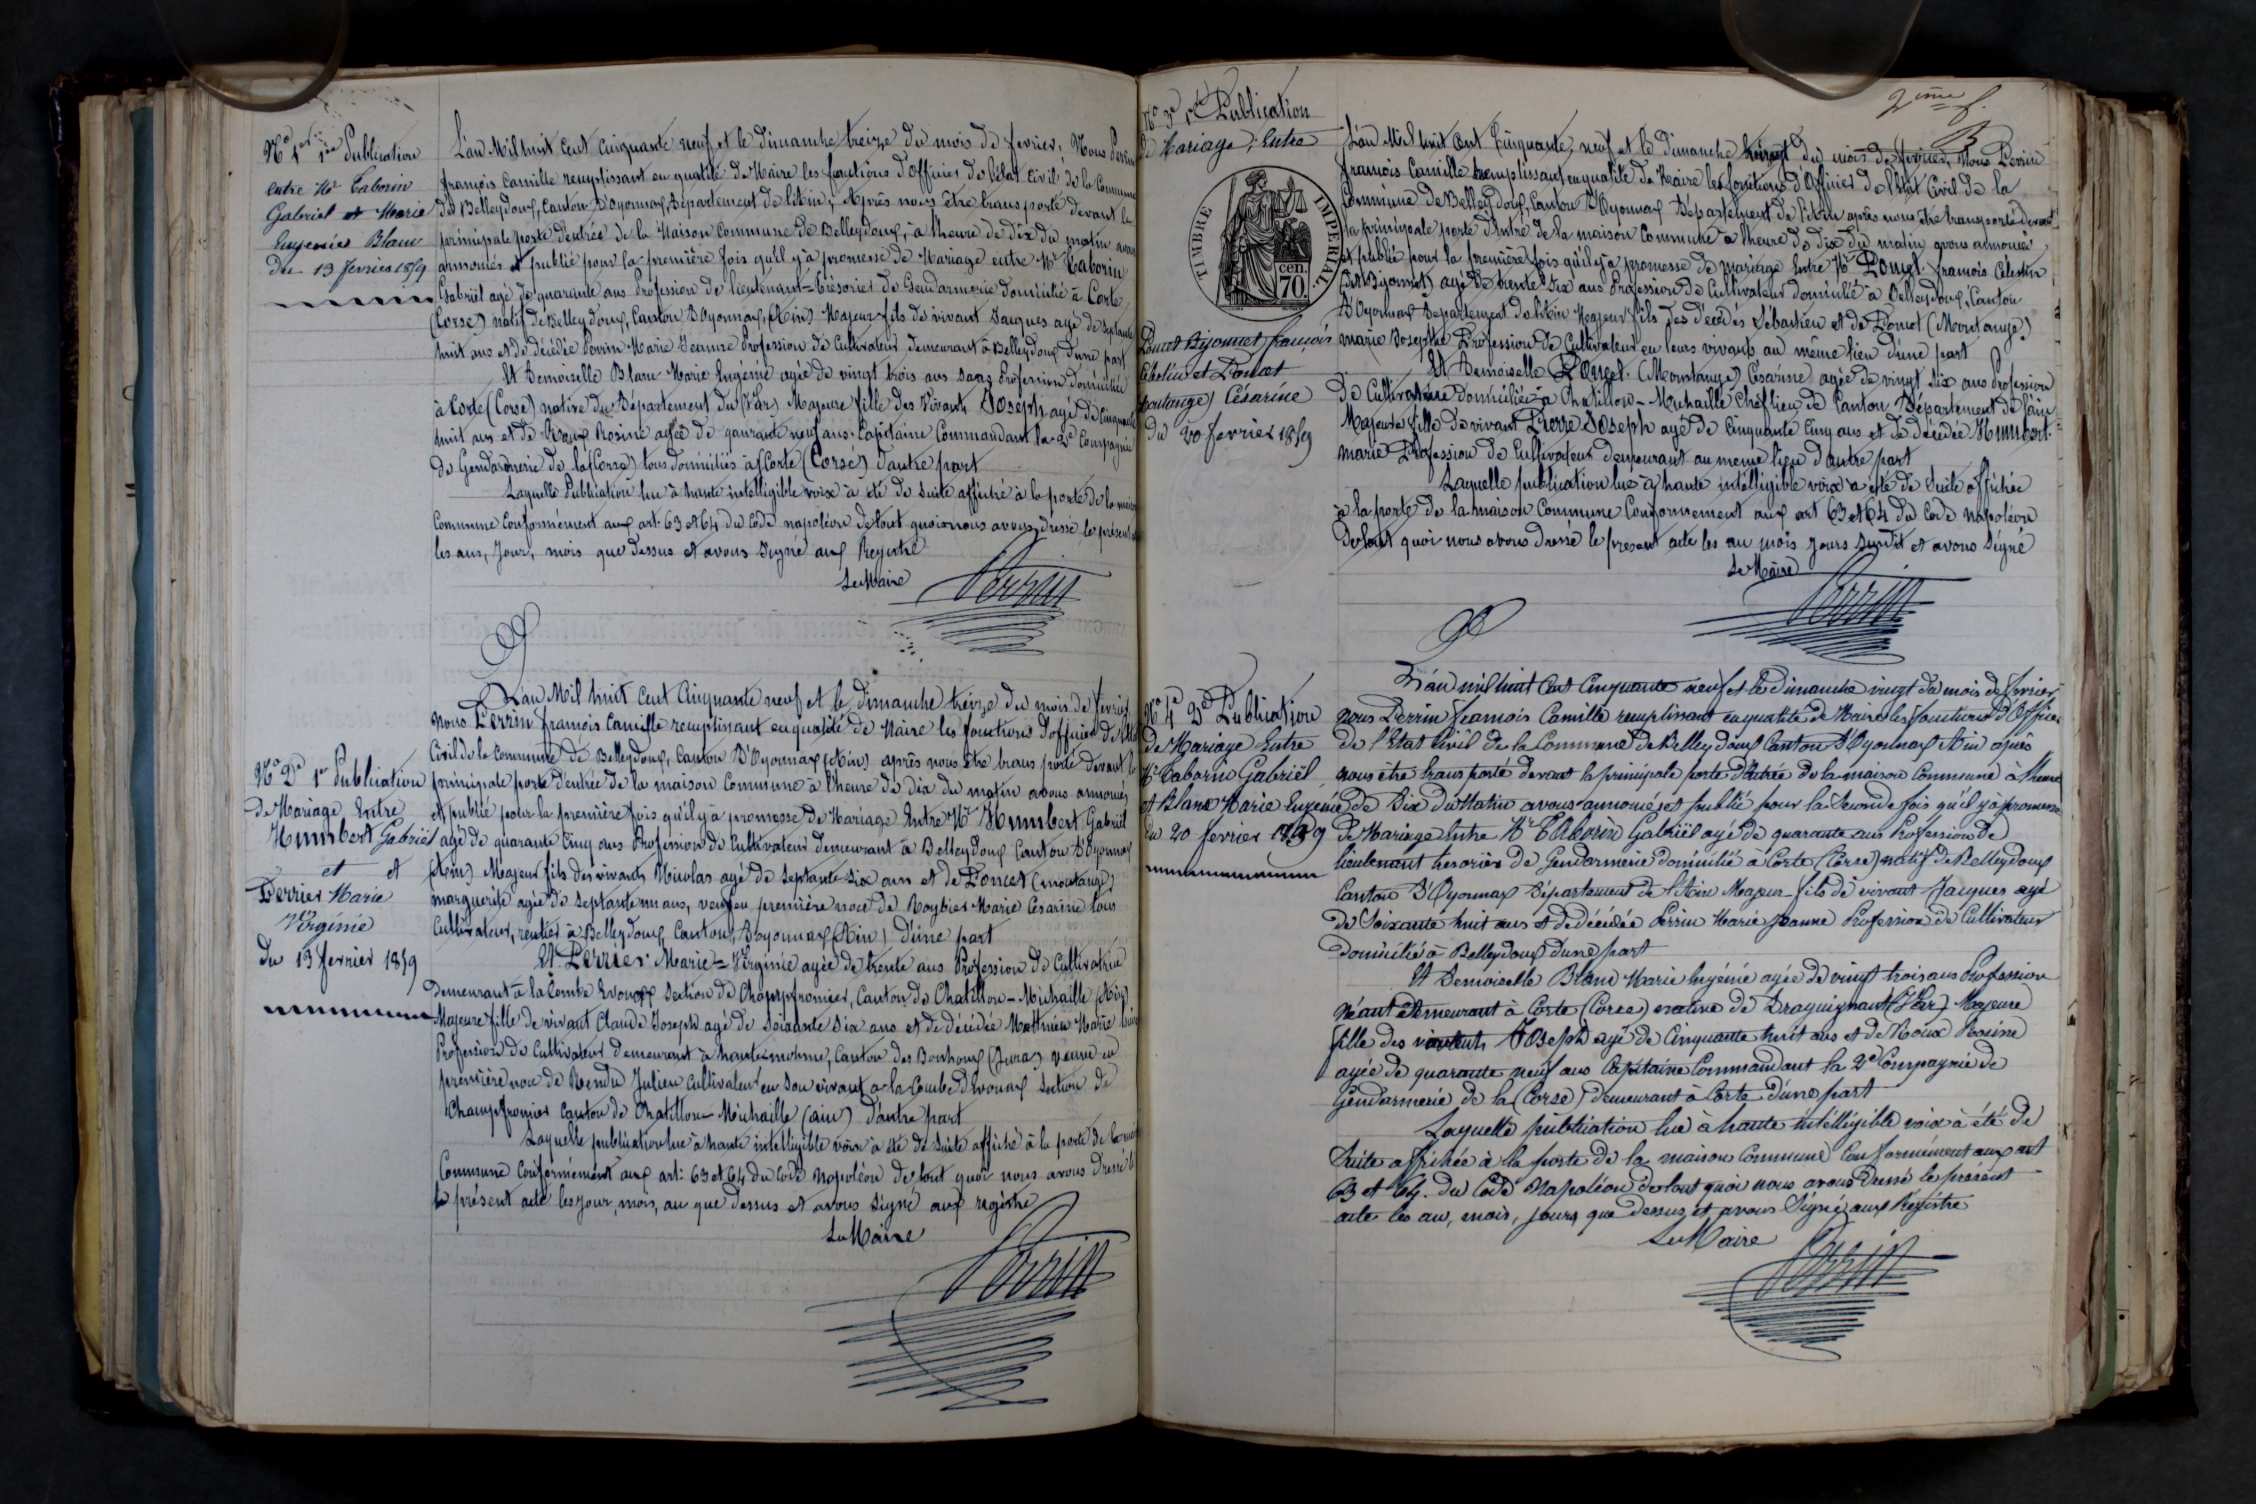 No 1er 1ère Publication
entre Mr Taborin
Gabriel et Marie
Eugénie Blanc
du 13 fevrier 1859
L'an Mil huit Cent Cinquante neuf et le dimanche treize du mois de fevrier, Nous Perrin
françois Camille remplissant en qualité de Maire les fonctions d'Officier de l'état Civil de la Commune
de Belleydoux, Canton d'Oyonnax, Département de l'Ain, Après nous être transporté devant la
principale porte d'entrée de la Maison Commune de Belleydoux, à l'heure de dix du matin avons
annoncés et publié pour la première fois qu'il y'à promesse de Mariage entre Mr Taborin
Gabriël agé de quarante ans Profession de lieutenant-trésorier de Gendarmerie domicilié à Corte
(Corse) natif de Belleydoux, Canton d'Oyonnax, (Ain) Majeur fils de vivant Jacques agé de septante
huit ans et de décédée Perrin Marie Jeanne Profession de Cultivateur demeurant à Belleydoux d'une part
Et Demoiselle Blanc Marie Eugénie agée de vingt trois ans sans Profession domiciliée
à Corte (Corse) native du Département du (Var) Majeure fille des Vivants Joseph agé de Cinquante
huit ans et de Roux Rosine agée de quarante neuf ans. Capitaine Commandant la 2e Compagnie
de Gendarmerie de la (Corse) tous domiciliés à Corte (Corse) d'autre part
Laquelle Publication lue à haute intelligible voix à été de suite affiché à la porte de la maison
Commune Conformément aux art. 63 et 64 du Code napoléon de tout quoi nous avons dressé le présent acte
les ans, Jour, mois que dessus et avons Signé aux Registre
Le Maire Perrin
No 2e 1er Publication
de Mariage Entre
Humbert Gabriël
et et
Perrier Marie
Virginie
du 13 fevrier 1859
L'an Mil huit Cent Cinquante neuf et le dimanche treize du mois de fevrier
nous Perrin françois Camille remplissant en qualité de Maire les fonctions d'officier de l'état
Civil de la Commune de Belleydoux, Canton d'Oyonnax (Ain) après nous être trans porté devant la
principale porte d'entrée de la maison Commune à l'heure de dix du matin avons annoncés
et publié pour la première fois qu'il y à promesse de Mariage Entre Mr Humbert Gabriël
agé de quarante Cinq ans Profession de Cultivateur demeurant à Belleydoux Canton d'Oyonnax
(Ain) Majeur fils des vivants Nicolas agé de Septante-Six ans et de Poncet (montange)
marguerite agée de Septante un ans, veuf en première noce de Roybier Marie Césarine tous
Cultivateur, rentier à Belleydoux, Canton, d'Oyonnax (Ain) d'une part
Et Perrier Marie-Virginie agée de trente ans Profession de Cultivatrice
demeurant à la Combe Evouaz section de Champfromier, Canton de Chatillon-Michaille (Ain)
Majeure fille de vivant Claude Joseph agé de Soixante Six ans et de décédée Matthieu Marie
Profession de Cultivateur demeurant à haute-molune, Canton des Bouchoux (Jura) veuve en
première noce de Rendu Julien Cultivateur en son vivant à la Combe d'Evouaz section de
Champfromier Canton de Chatillon-Michaille (ain) d'autre part
Laquelle publication lue à haute intelligible voix à été de Suite affiché à la porte de la maison
Commune Conformément aux art: 63 et 64 du Code Napoléon de tout quoi nous avons dressé
le présent acte les jour, mois, an que dessus et avons Signé aux registre
Le Maire Perrin
2ème f.
No 3e 1ère Publication
de Mariage, Entre
TIMBRE IMPÉRIAL
cen. 70
Poncet Bijonnet françois
Célestin et Poncet
(montange) Césarine
Du 20 fevrier 1859
L'an Mil huit Cent Cinquante, neuf et le dimanche vingt du mois de fevrier, Nous Perrin
françois Camille Remplissant en qualité de Maire les fonctions d'Officier de l'état Civil de la
Commune de Belleydoux, Canton d'Oyonnax Département de l'Ain après nous être transporté devant
la principale porte d'Entrée de la maison Commune à l'heure de dix du matin avons annoncés
et publié pour la première fois qu'il y a promesse de mariage Entre Mr Poncet françois Célestin
(Bijonnet) agé de trente Six ans Profession de Cultivateur domicilié à Belleydoux, Canton
d'Oyonnax Département de l'Ain Majeur fils des décédés Sébastien et de Poncet (Montange)
marie Josephte Profession de Cultivateur en leurs vivants au même lieu d'une part
Et Demoiselle Poncet (Montange) Césarine agée de vingt Six ans Profession
de Cultivatrice domiciliée à Chatillon-Michaille Chef lieu de Canton Département de l'ain
Majeure fille de vivant Pierre Joseph agé de Cinquante Cinq ans et de décédée Humbert
marie Profession de Cultivateur demeurant au meme lieu d'autre part
Laquelle publication lue à haute intelligible voix à été de Suite affichée
à la porte de la maison Commune Conformement aux art 63 et 64 du Code Napoléon
de tout quoi nous avons dressé le present acte les an mois jours susdit et avons Signé
Le Maire Perrin
No 4e 2de Publication
de Mariage Entre
Mr Taborin Gabriël
et Blanc Marie Eugénie
du 20 fevrier 1859
L'an mil huit Cent Cinquante neuf et le dimanche vingt du mois de fevrier
nous Perrin francois Camille remplissant en qualité de Maire les fonctions d'Officier
de l'Etat Civil de la Commune de Belleydoux Canton d'Oyonnax Ain après
nous être transporté devant la principale porte d'Entrée de la maison Commune à l'heure
de Dix du Matin avons annoncés et publié pour la Seconde fois qu'il y à promesse
de Mariage entre Mr Taborin Gabriël agé de quarante ans Profession de
lieutenant tresorier de Gendarmerie domicilié à Corte (Corse) natif de Belleydoux
Canton d'Oyonnax Département de l'Ain Majeur fils de vivant Jacques agé
de Soixante huit ans et de décédée Perrin Marie Jeanne Profession de Cultivateur
domicilié à Belleydoux d'une part
Et Demoiselle Blanc Marie Eugénie agée de vingt trois ans Profession
Néant demeurant à Corte (Corse) native de Draguignant (Var) Majeure
fille des vivants Joseph agé de Cinquante huit ans et de Roux Rosine
agée de quarante neuf ans Capitaine Commandant la 2e Compagnie de
Gendarmerie de la (Corse) demeurant à Corte d'une part
Laquelle publication lue à haute intélligible voix à été de
Suite affichée à la porte de la maison Commune Conformément aux art
63 et 64. du Code Napoléon de tout quoi nous avons Dressé le présent
acte les an, mois, jours que dessus et avons Signé aux Registre
Le Maire Perrin